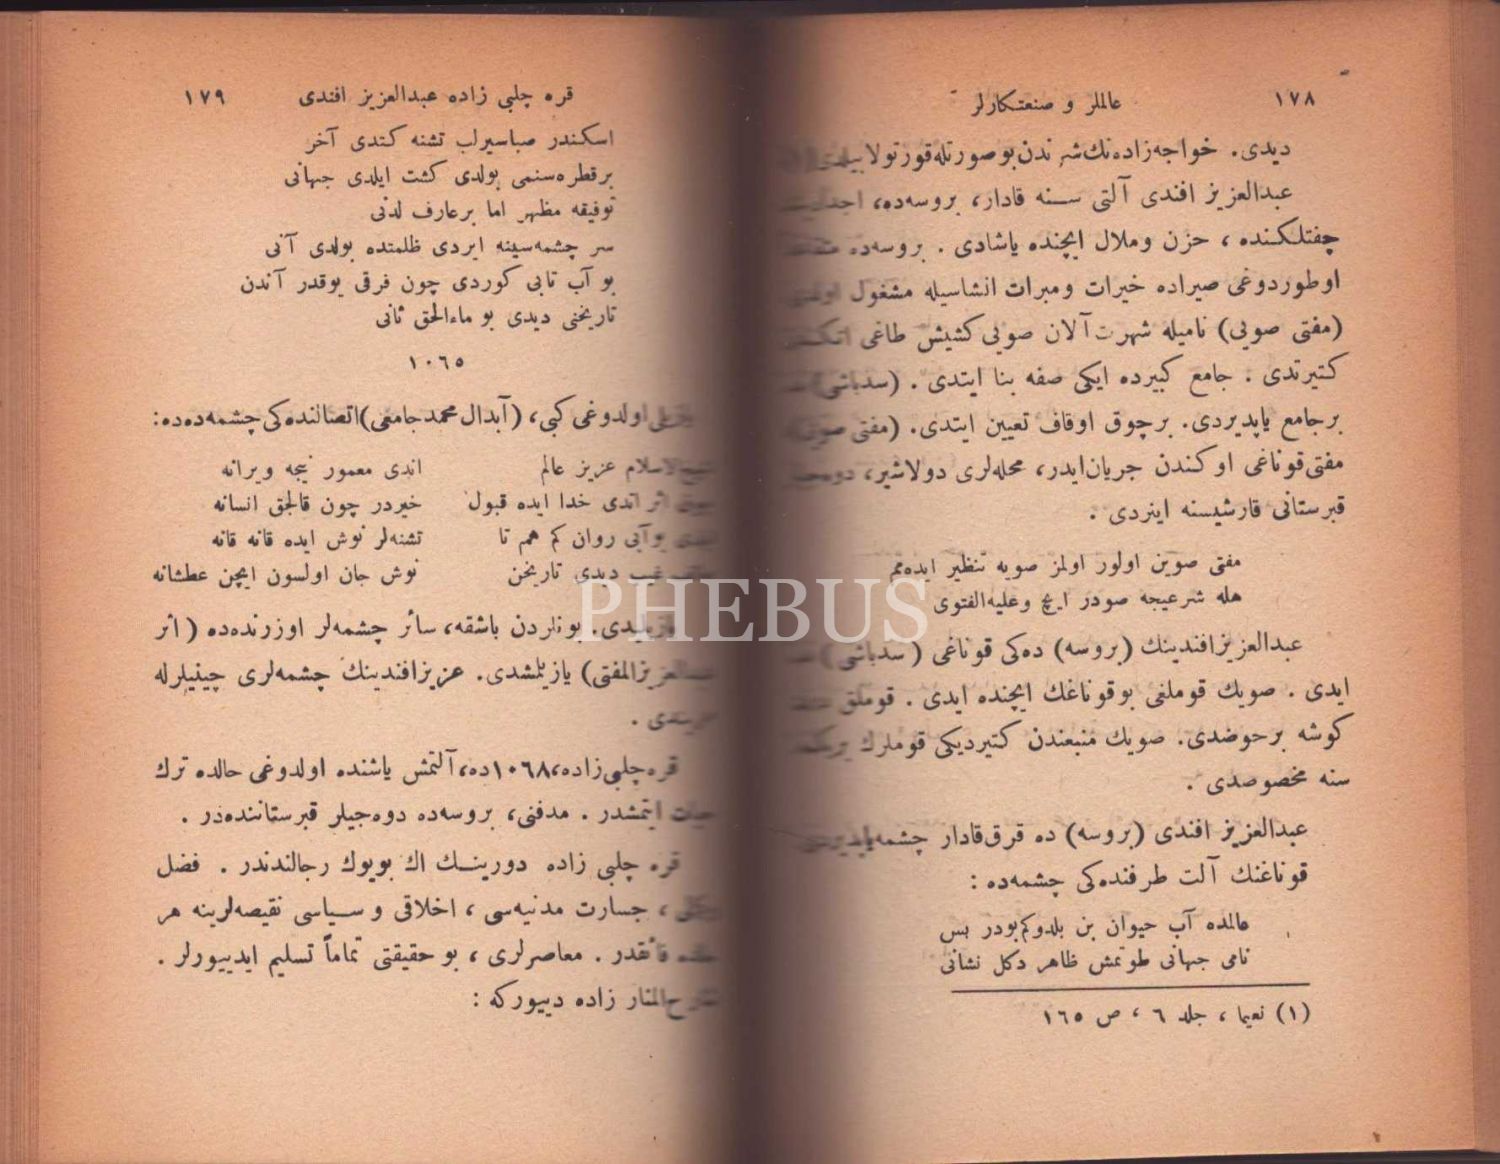 ١٧٨
عالملر و صنعتكارلر
دیدی. خواجه‌زاده‌نك شرندن بو صورتله قورتولا بیلدی
عبدالعزیز افندی آلتی سـنه قادار، بروسه‌ده،
چفتلكنده، حزن و ملال ایچنده یاشادی. بروسه‌ده
اوطوردوغی صیراده خیرات و مبرات انشاسیله مشغول
(مفتی صویی) نامیله شهرت آلان صویی كشیش طاغی
كتیرتدی. جامع كبیرده ایكی صفه بنا ایتدی. (سدباشی)
برجامع یاپدیردی. برچوق اوقاف تعیین ایتدی. (مفتی صویی)
مفتی قوناغی اوكندن جریان ایدر، محله‌لری دولاشیر،
قبرستانی قارشیسنه اینردی.
مفتی صوین اولور اولمز صویه تنظیر ایده‌مم
هله شرعیجه صودر ایچ وعلیه‌الفتوی
عبدالعزیز افندینك (بروسه) ده‌كی قوناغی (سدباشی)
ایدی. صویك قوملغی بو قوناغك ایچنده ایدی. قوملق
كوشه برحوضدی. صویك منبعندن كتیردیكی قوملرك
سنه مخصوصدی.
عبدالعزیز افندی (بروسه) ده قرق قادار چشمه یاپدیردی
قوناغنك آلت طرفنده‌كی چشمه‌ده:
عالمده آب حیوان بن بلدوكم بودر بس
نامی جهانی طوتمش ظاهر دكل نشانی
(١) نعیما، جلد ٦، ص ١٦٥
قره چلبی زاده عبدالعزیز افندی
١٧٩
اسكندر صباسیرلب تشنه كتدی آخر
برقطره‌سنمی بولدی كشت ایلدی جهانی
توفیقه مظهر اما برعارف لدنی
سر چشمه‌سینه ایردی ظلمتده بولدی آنی
بو آب تابی كوردی چون فرقی یوقدر آندن
تاریخنی دیدی بو ماءالحق ثانی
١٠٦٥
اولدوغی كبی، (آبدال محمد جامعی) اتصالنده‌كی چشمه‌ده ده:
شیخ‌الاسلام عزیز عالم
اندی معمور نیجه ویرانه
اثر اتدی خدا ایده قبول
خیردر چون قالجق انسانه
بو آبی روان كم هم تا
تشنه‌لر نوش ایده قانه قانه
غیب دیدی تاریخن
نوش جان اولسون ایچن عطشانه
یازیلیدی. بونلردن باشقه، سائر چشمه‌لر اوزرنده‌ده (اثر
عبدالعزیزالمفتی) یازیلمشدی. عزیز افندینك چشمه‌لری چینیلرله
قره چلبی زاده، ١٠٦٨ده، آلتمش یاشنده اولدوغی حالده ترك
حیات ایتمشدر. مدفنی، بروسه‌ده دوه‌جیلر قبرستاننده‌در.
قره چلبی زاده دورینـك اك بویوك رجالندندر. فضل
، جسارت مدنیه‌سی، اخلاقی و سـیاسی نقیصه‌لرینه هر
فائقدر. معاصرلری، بو حقیقتی تماماً تسلیم ایدییورلر.
شارح‌المنار زاده دییوركه:
PHEBUS